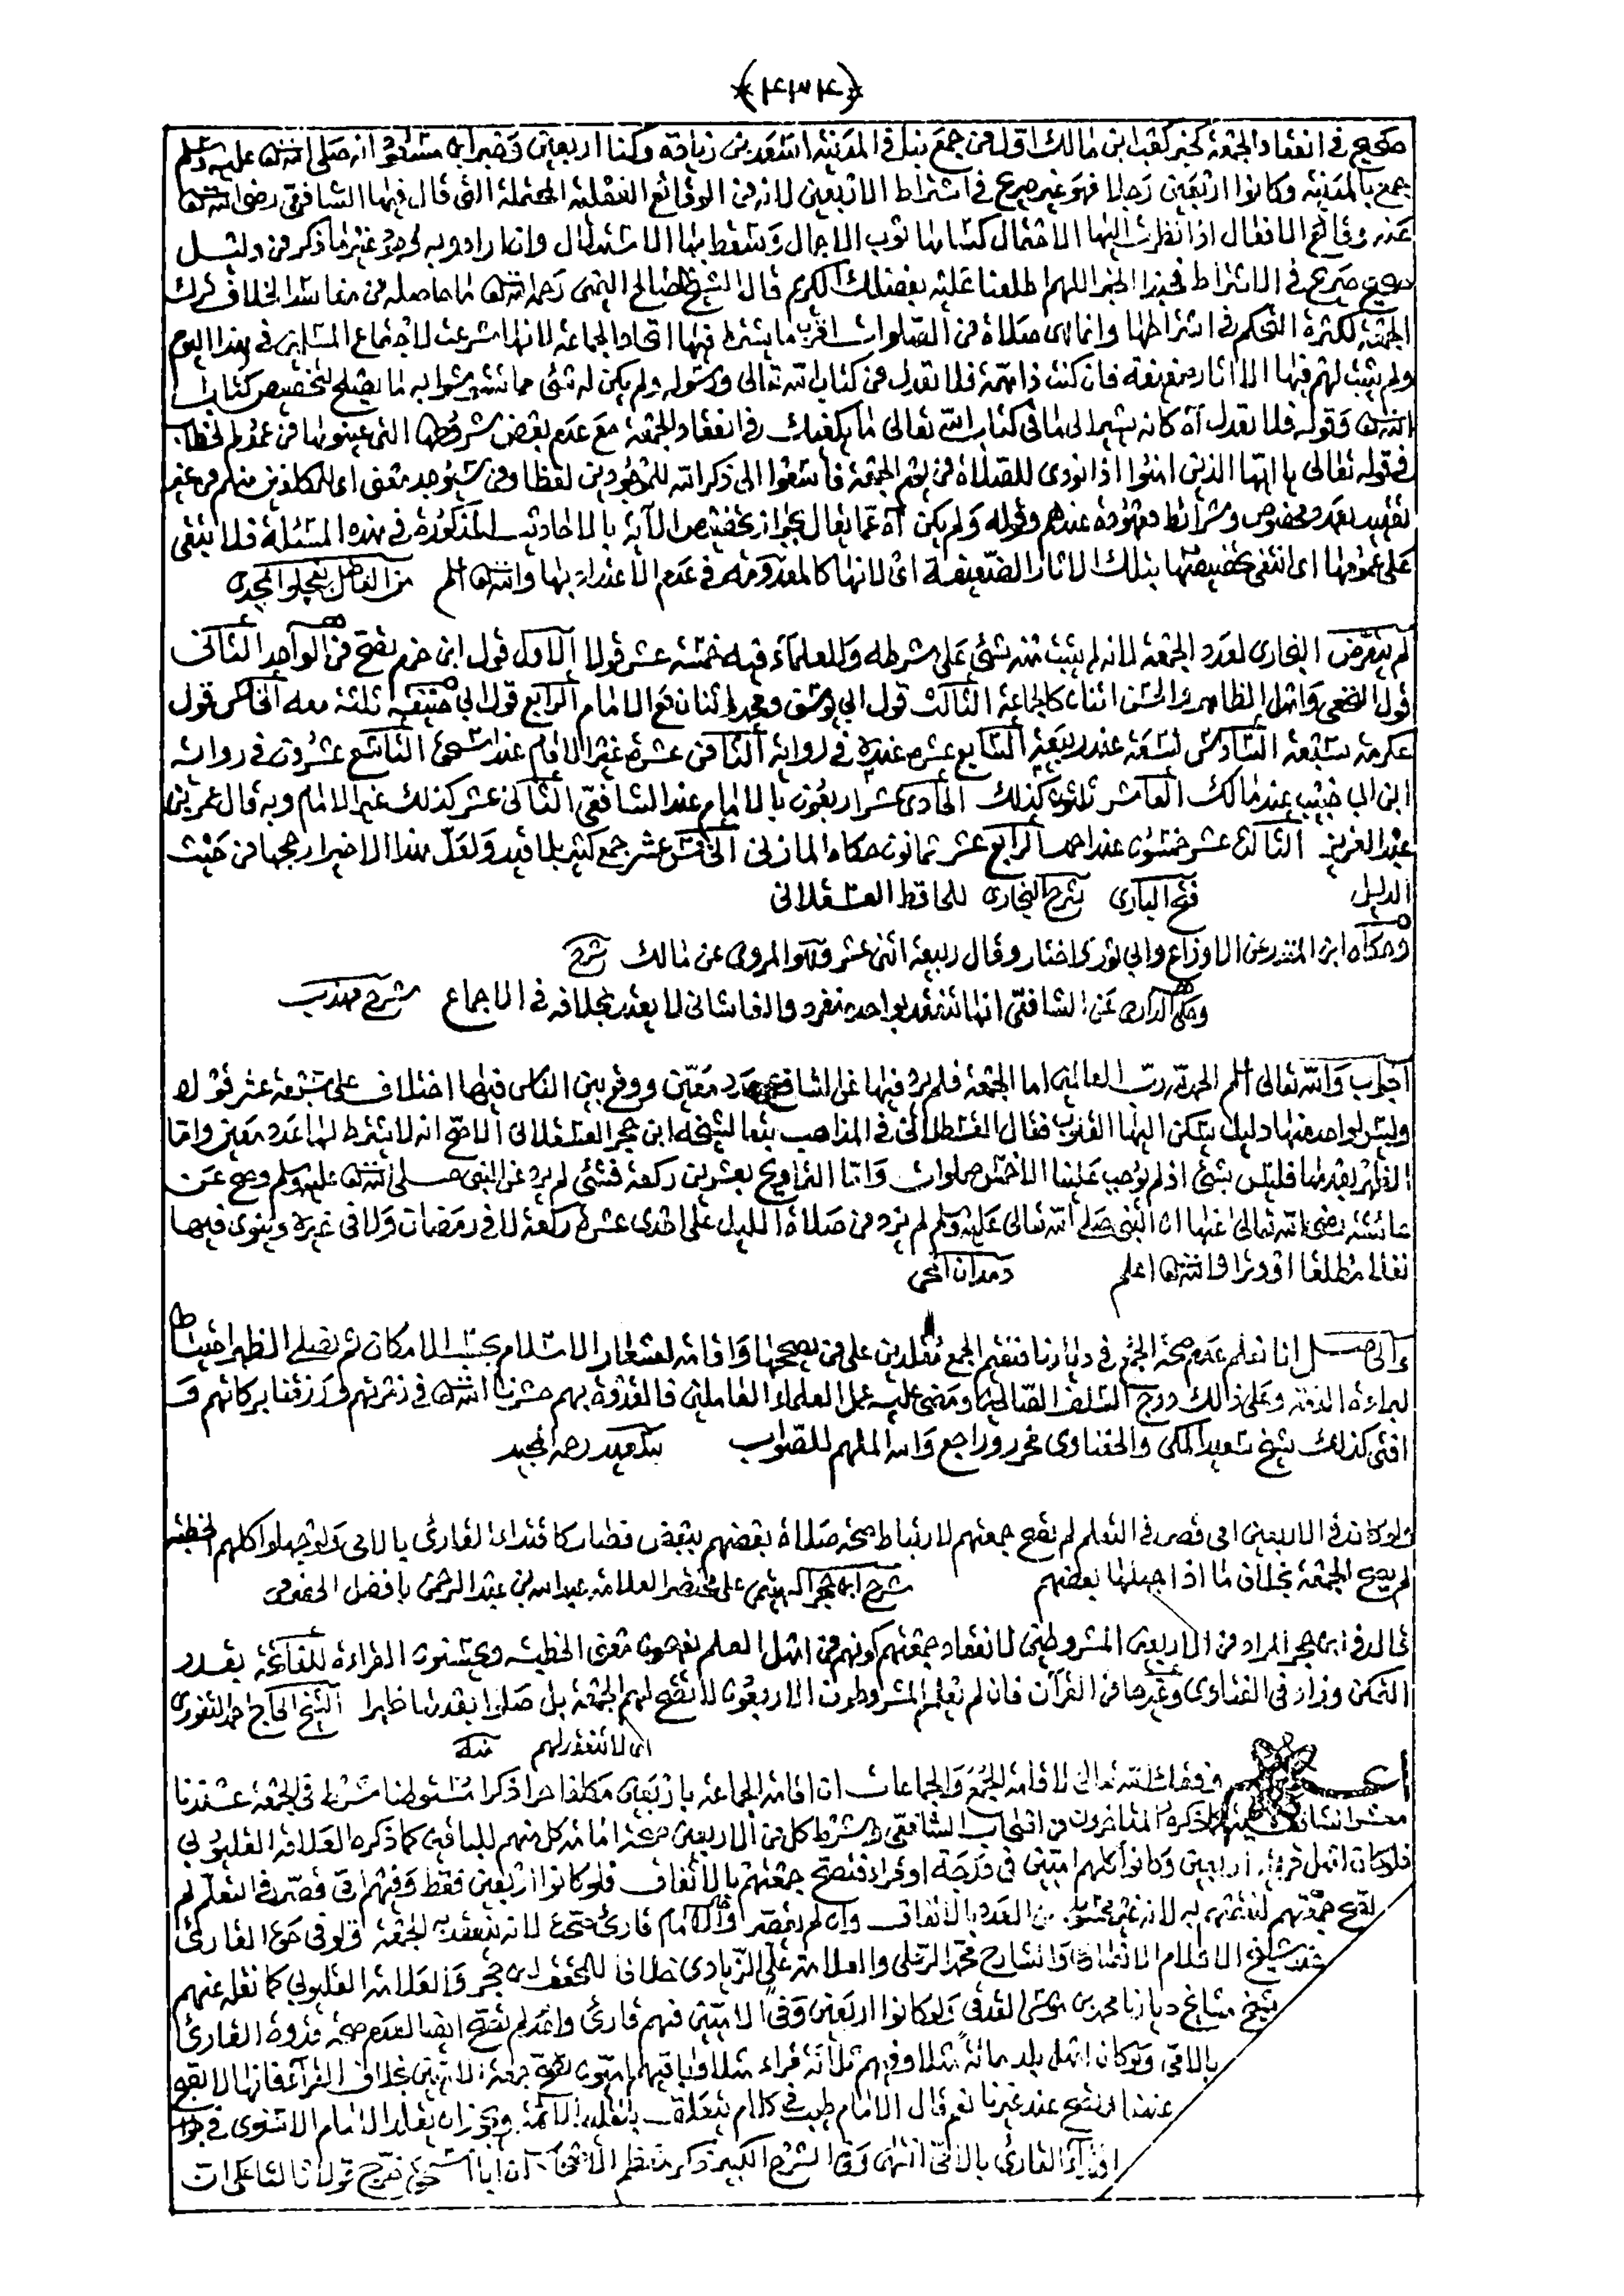 ﴿٤٣٤﴾
صحيح في انعقاد الجمعة كخبر كعب ابن مالك اول من جمع بنا في المدينة اسعد بن زرارة وكنا اربعين وخبر ابن مسعود انه صلى الله عليه وسلم
جمع بالمدينة وكانوا اربعين رجلا فهو غير صريح في اشتراط الاربعين لانه من الوقائع الفعلية المحتملة التي قال فيها الشافعي رضي الله
عنه وقائع الافعال اذا تطرق اليها الاحتمال كساها ثوب الاجمال وسقط بها الاستدلال وانما رادوا به غير ما ذكر من دليل
صحيح صريح في الاشتراط فخذ الخبر اللهم اطلعنا عليه بفضلك الكريم قال الشيخ صالح اليمني رحمه الله ما حاصله من مفاسد الخلاف ترك
الجمعة لكثرة التحكم في اشتراطها وانما هي صلاة من الصلوات اقرب ما يشترط فيها اتحاد الجماعة لانها شرعت لاجتماع المسلمين في هذا اليوم
ولم يثبت لهم فيها الا اثار ضعيفة فان كنت ذا همة فلا تعدل عن كتاب الله تعالى ورسوله ولم يكن له شيء مما تشبثوا به ما يصلح لتخصيص كتاب
الله وقوله فلا تعدل اه كانه يشير الى ما في كتاب الله تعالى ما يكفيك في انعقاد الجمعة مع عدم بعض شروطها التي عينوها من عموم الخطاب
في قوله تعالى يا ايها الذين امنوا اذا نودي للصلاة من يوم الجمعة فاسعوا الى ذكر الله للموجودين لفظا ومن سيوجد معنى اي للمكلفين منهم من غير
تقييد بعدد مخصوص وشرائط معهودة عندهم وقوله ولم يكن اه عما يقال بجواز تخصيص الآية بالاحاديث المذكورة في هذه المسئلة فلا يبقى
على عمومها اي انتفى تخصيصها بتلك الاثار الضعيفة اي لانها كالمعدومة في عدم الاعتداد بها والله اعلم من الفاضل
لم يتعرض البخاري لعدد الجمعة لانه لم يثبت منه شيء على شرطه وللعلماء فيه خمسة عشر قولا الاول قول ابن حزم تصح من الواحد الثاني
قول النخعي واهل الظاهر والحسن اثنان كالجماعة الثالث قول ابي يوسف ومحمد اثنان مع الامام الرابع قول ابي حنيفة ثلثة معه الخامس قول
عكرمة سبعة السادس تسعة عند ربيعة السابع عشر عنده في رواية الثامن عشرة غير الامام عند اسحق التاسع عشرون في رواية
ابن حبيب عند مالك العاشر ثلثون كذلك الحادي عشر اربعون بالامام عند الشافعي الثاني عشر كذلك غير الامام وبه قال عمر بن
عبد العزيز الثالث عشر خمسون عند احمد الرابع عشر ثمانون حكاه المازني الخامس عشر جمع كثير بلا قيد ولعل هذا الاخير ارجحها من حيث
الدليل فتح الباري بشرح البخاري للحافظ العسقلاني
وحكاه ابن المنذر عن الاوزاعي وابي ثور اختار وقال ربيعة اثنى عشر وهو المروي عن مالك شرح
وحكى الدارمي عن القاشاني انها تنعقد بواحد منفرد والقاشاني لا يعتد بخلافه في الاجماع شرح مهذب
الجواب والله تعالى اعلم الحمد لله رب العالمين اما الجمعة فلم يرد فيها عن الشارع عدد معين ووقع بين الناس فيها اختلاف على سبعة عشر قولا
وليس لواحد منها دليل يسكن اليها القلوب فقال القسطلاني في المذاهب تبعا لشيخه ابن حجر العسقلاني الاصح انه لا يشترط لها عدد معين واما
الظهر بعدها فليس بشيء اذ لم يوجب علينا الا خمس صلوات واما التراويح بعشرين ركعة فشيء لم يرد عن النبي صلى الله عليه وسلم وصح عن
عائشة رضي الله تعالى عنها ان النبي صلى الله تعالى عليه وسلم لم يزد من صلاة الليل على احدى عشرة ركعة لا في رمضان ولا في غيره وينوي فيها
نفلا مطلقا او وترا والله اعلم
والحاصل انا نعلم عدم صحة الجمع في ديارنا فنقيم الجمع مقلدين على من يصححها واقامة لشعار الاسلام بحسب الامكان ثم نصلي الظهر احتياطا
لبراءة الذمة وعلى ذلك درج السلف الصالحون ومضى عليه عمل العلماء العاملين فالقدوة بهم حشرنا الله في زمرتهم ورزقنا بركاتهم و
افتى كذلك شيخ سعيد المكي والحفناوي فحرر وراجع والله الملهم للصواب
ولو كان في الاربعين امي قصر في التعلم لم تصح جمعتهم لارتباط صحة صلاة بعضهم ببعض فصار كاقتداء القارئ بالامي ولو جهلوا كلهم الخطبة
لم يصح الجمعة بخلاف ما اذا جهلها بعضهم شرح ابن حجر الهيتمي على مختصر العلامة عبد الله بن عبد الرحمن بافضل الحضرمي
قال ابن حجر المراد من الاربعين المشروطين لانعقاد جمعتهم كونهم من اهل العلم يفهمون معنى الخطبة ويحسنون القراءة للفاتحة بقدر
التمكن وزاد في الفتاوى وغيرها من القرآن فان لم يعلم المشروطون الاربعون لا تصح لهم الجمعة بل صلوا بقدرها ظهرا الشيخ الحاج
اي لا تنعقد لهم منه
اعلم وفقك الله تعالى لاقامة الجمع والجماعات ان اقامة الجماعة باربعين مكلفا حرا ذكرا مستوطنا شرط في الجمعة عندنا
معشر الشافعية كما ذكره المتاخرون من اصحاب الشافعي وشرط كل من الاربعين صحة امامة كل منهم للباقين كما ذكره العلامة القليوبي
فلو كان اهل قرية اربعين وكانوا كلهم اميين في درجة او قراء فتصح جمعتهم بالاتفاق فلو كانوا اربعين فقط وفيهم امي قصر في التعلم لم
تصح جمعتهم لنقصهم به لانه غير محسوب من العدد بالاتفاق وان لم يقصر والامام قارئ صح لانه تنعقد به الجمعة ولو في حق القارئ
عند شيخ الاسلام الانصاري والشارح محمد الرملي والعلامة علي الزيادي خلافا للمحقق ابن حجر والعلامة القليوبي كما نقله عنهم
شيخ مشايخ ديارنا محمد بن موسى القدقي ولو كانوا اربعين وفي الاميين فيهم قارئ واحد لم تصح ايضا لعدم صحة قدوة القارئ
بالامي ولو كان اهل بلد مائة مثلا وفيهم ثلاثة قراء مثلا وباقيهم اميون جمعة الاميين بخلاف القراء فانها لا تصح
عندنا وتصح عند غيرنا نعم قال الامام في كلام ويجوز ان يقلد الامام الاسنوي في جواز
اقتداء القارئ بالامي انتهى وفي الشرح الكبير